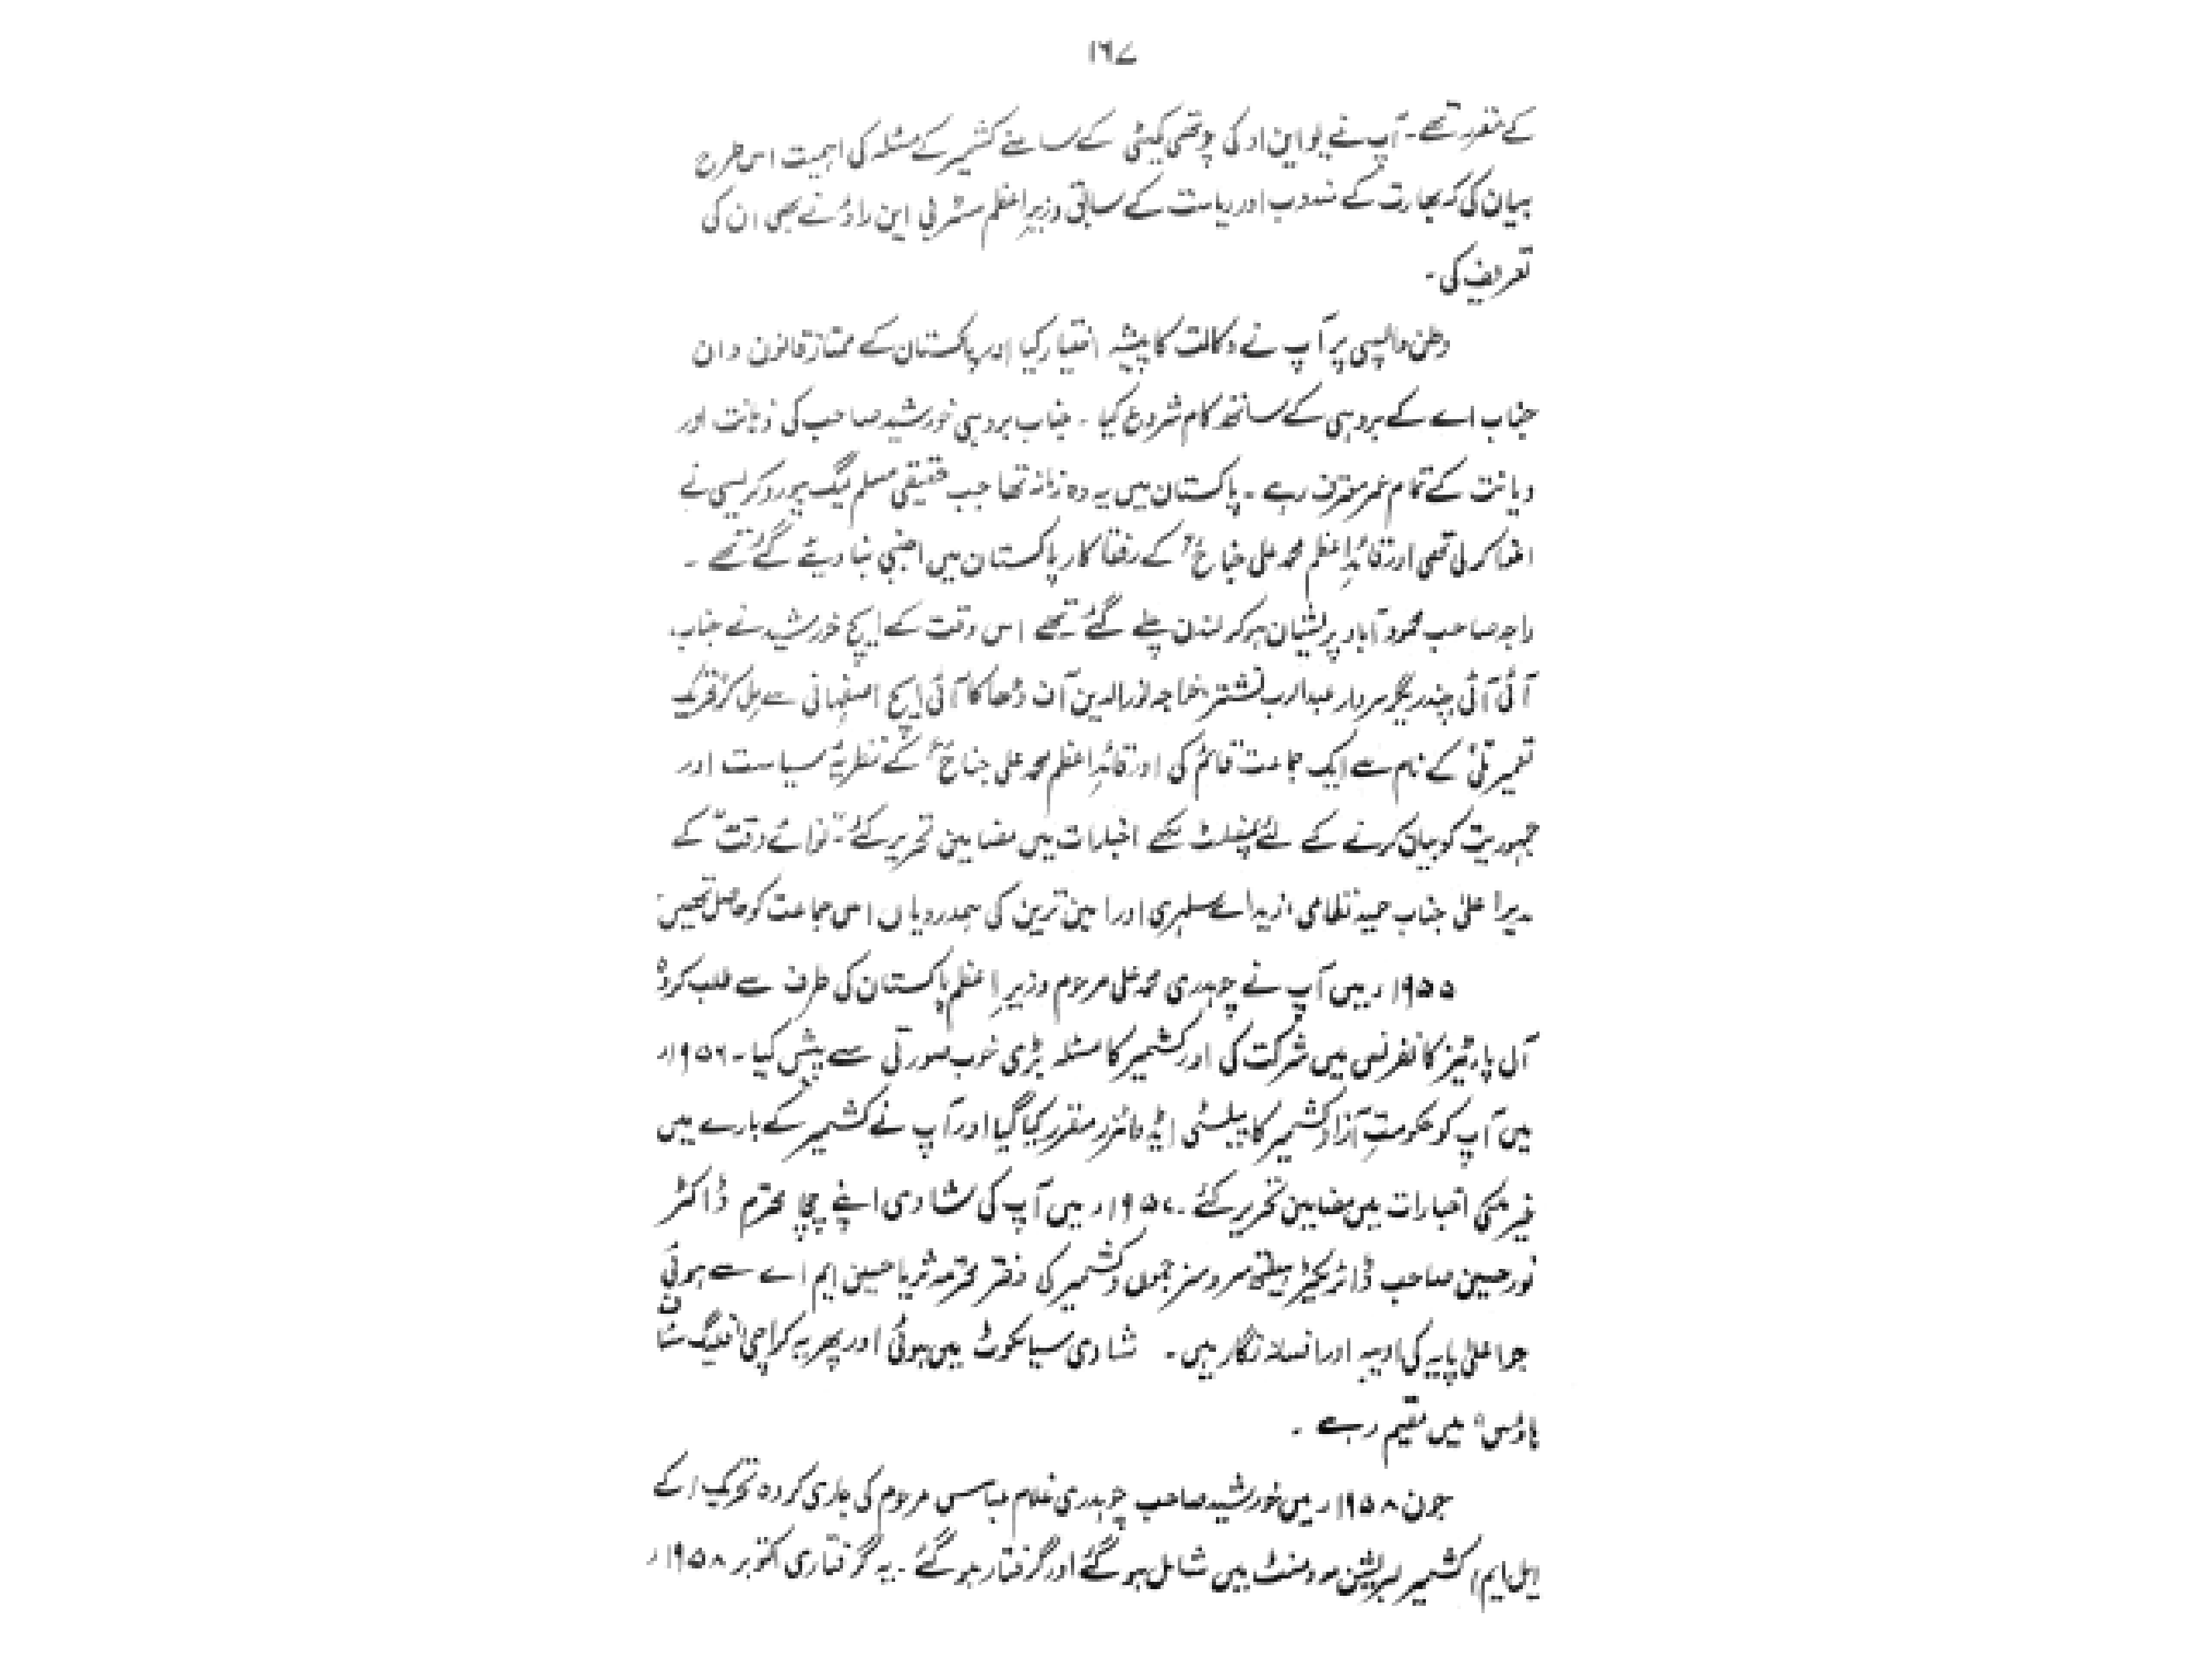 ۱۶۷
کے منفرد تھے۔ آپ نے یو این او کی چوتھی کمیٹی کے سامنے کشمیر کے مسئلہ کی اہمیت اس طرح
بیان کی کہ بھارت کے مندوب اور ریاست کے سابق وزیرِ اعظم مسٹر بی این راؤ نے بھی ان کی
تعریف کی۔
وطن واپسی پر آپ نے وکالت کا پیشہ اختیار کیا اور پاکستان کے ممتاز قانون دان
جناب اے کے بروہی کے ساتھ کام شروع کیا۔ جناب بروہی خورشید صاحب کی ذہانت اور
دیانت کے تمام عمر معترف رہے۔ پاکستان میں یہ وہ زمانہ تھا جب حقیقی مسلم لیگ بیوروکریسی نے
اغوا کر لی تھی اور قائدِ اعظم محمد علی جناحؒ کے رفقا کار پاکستان میں اجنبی بنا دیئے گئے تھے۔
راجہ صاحب محمود آباد پریشان ہو کر لندن چلے گئے تھے اس وقت کے ایچ خورشید نے جناب
آئی آئی چندریگر سردار عبدالرب نشتر، خواجہ نورالدین آف ڈھاکا آئی ایچ اصفہانی سے مل کر تحریک
تعمیر ملّی کے نام سے ایک جماعت قائم کی اور قائدِ اعظم محمد علی جناحؒ کے نظریۂ سیاست اور
جمہوریت کو بیان کرنے کے لئے پمفلٹ لکھے اخبارات میں مضامین تحریر کئے "نوائے وقت" کے
مدیرِ اعلیٰ جناب حمید نظامی، زیڈ اے سلہری اور امین ترین کی ہمدردیاں اس جماعت کو حاصل تھیں
۱۹۵۵ء میں آپ نے چوہدری محمد علی مرحوم وزیرِ اعظم پاکستان کی طرف سے طلب کردہ
آل پارٹیز کانفرنس میں شرکت کی اور کشمیر کا مسئلہ بڑی خوب صورتی سے پیش کیا۔ ۱۹۵۶ء
میں آپ کو حکومتِ آزاد کشمیر کا پبلسٹی ایڈوائزر مقرر کیا گیا اور آپ نے کشمیر کے بارے میں
غیر ملکی اخبارات میں مضامین تحریر کئے۔ ۱۹۵۷ء میں آپ کی شادی اپنے چچا محترم ڈاکٹر
نور حسین صاحب ڈائریکٹر ہیلتھ سروسز جموں و کشمیر کی دختر محترمہ ثریا حسین ایم اے سے ہوئی
جو اعلیٰ پایہ کی ادیبہ اور افسانہ نگار ہیں۔ شادی سیالکوٹ میں ہوئی اور پھر یہ کراچی
ہاؤس" میں مقیم رہے۔
جون ۱۹۵۸ء میں خورشید صاحب چوہدری غلام عباس مرحوم کی جاری کردہ تحریک (کے
ایل ایم) کشمیر لبریشن موومنٹ میں شامل ہو گئے اور گرفتار ہو گئے۔ یہ گرفتاری اکتوبر ۱۹۵۸ء